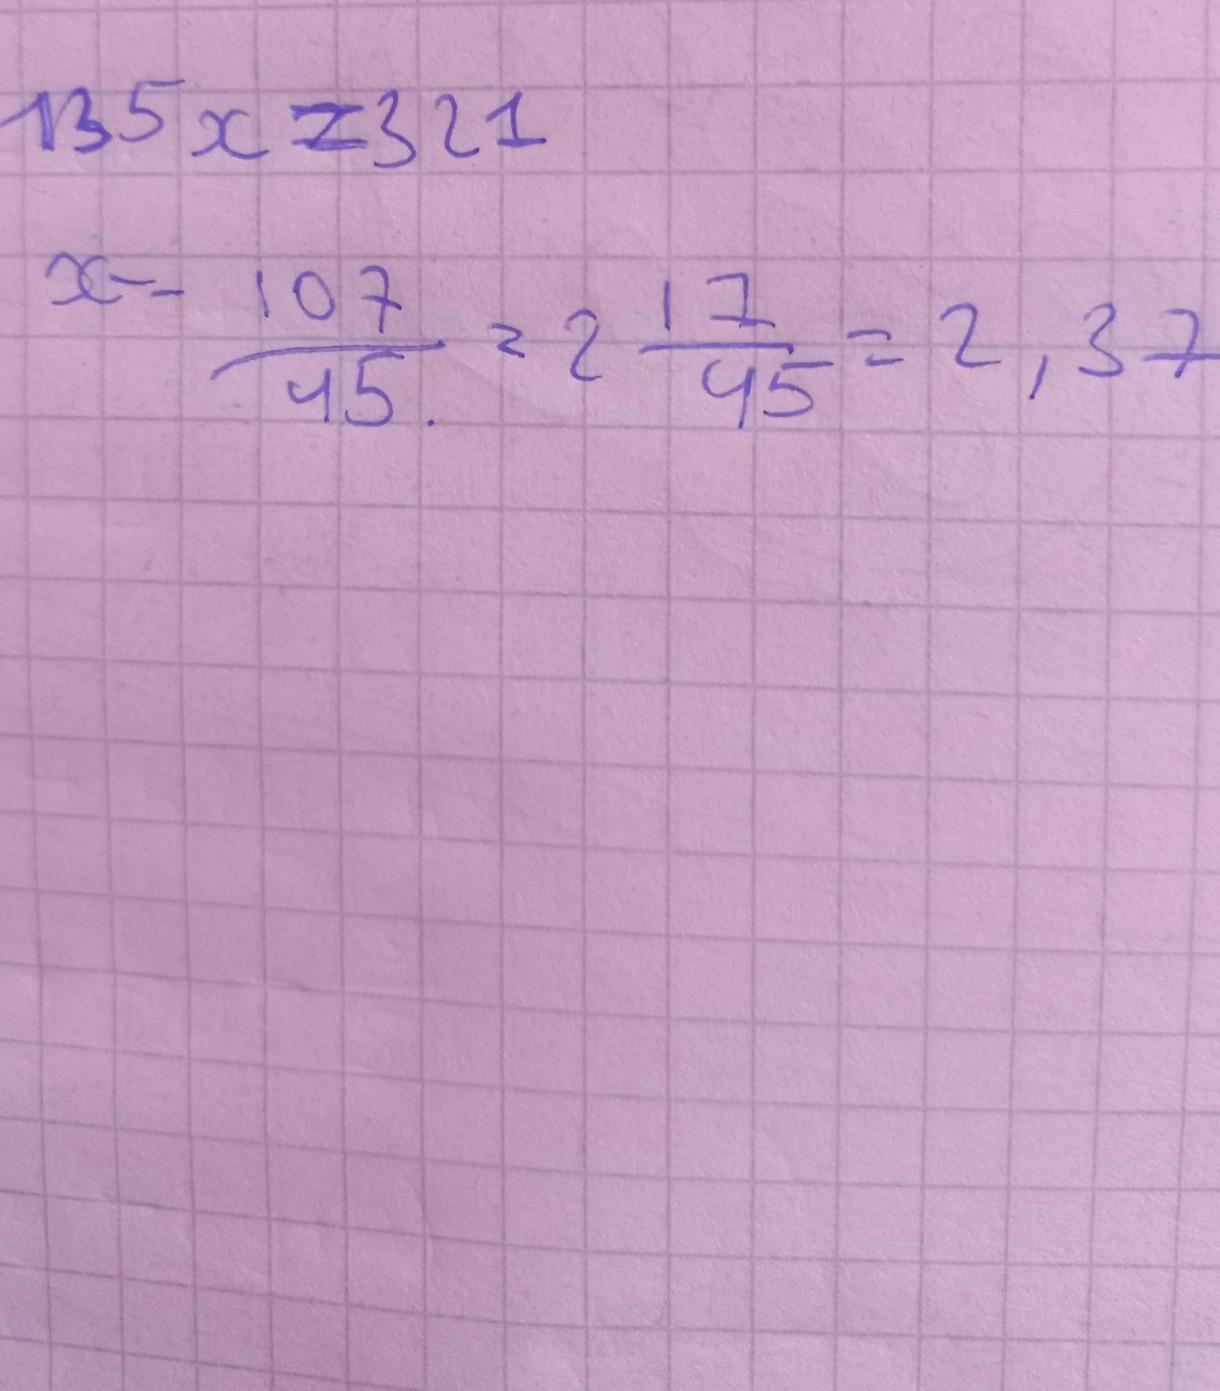 135x=321
x= 107/45. = 2 17/45 = 2,37